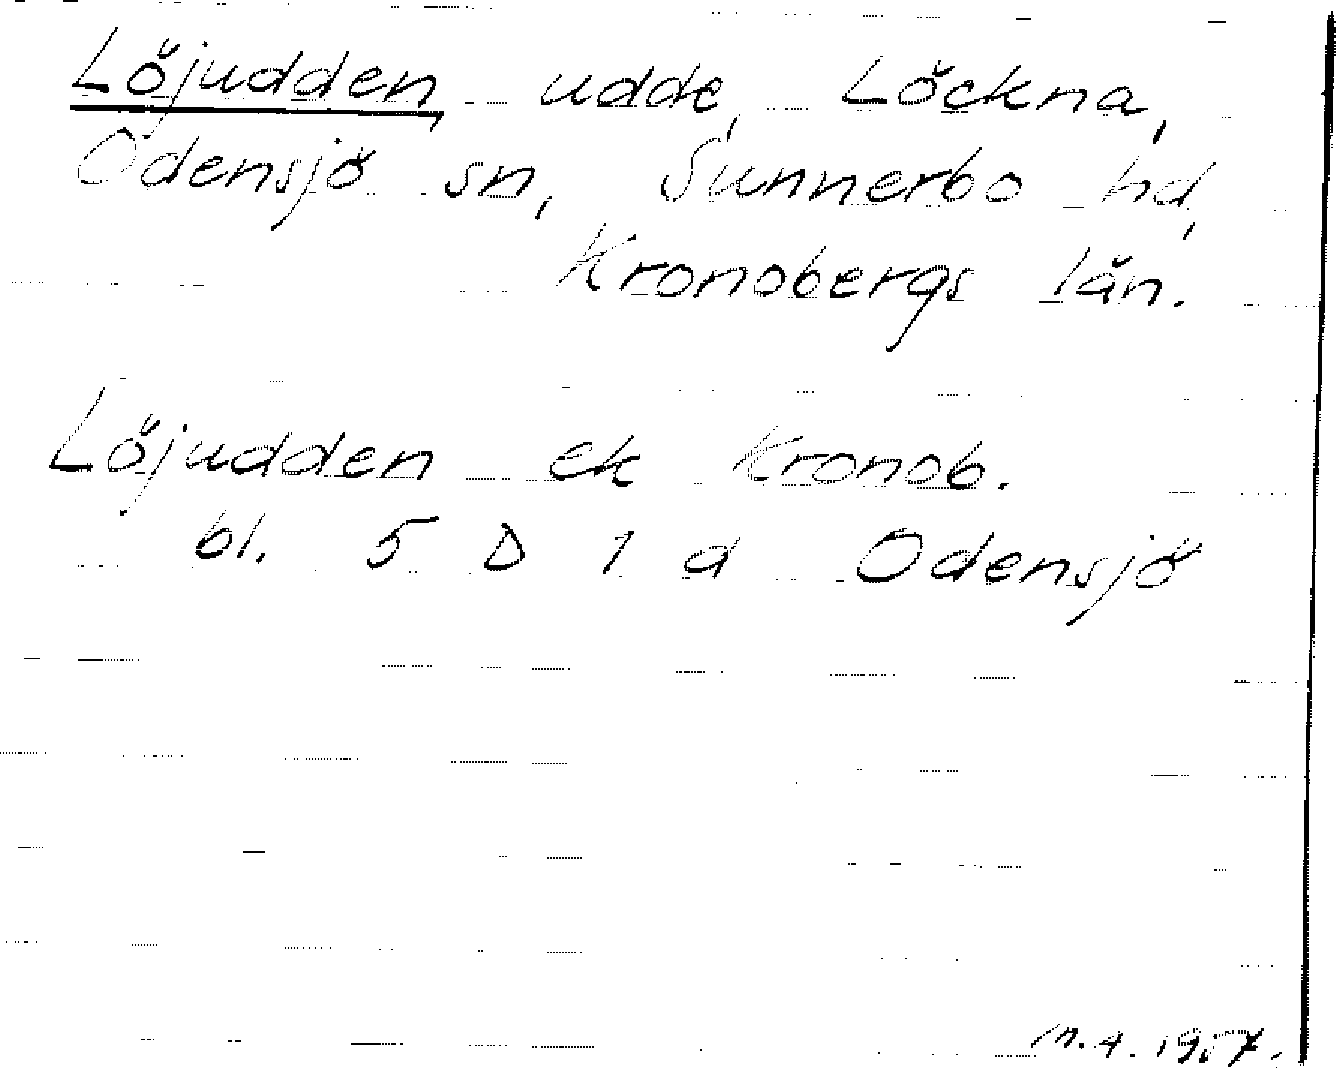 Löjudden, udde, Löckna,
Odensjö sn, Sunnerbo hd,
Kronobergs län.
Löjudden ek Kronob.
bl. 5 D 1 d Odensjö